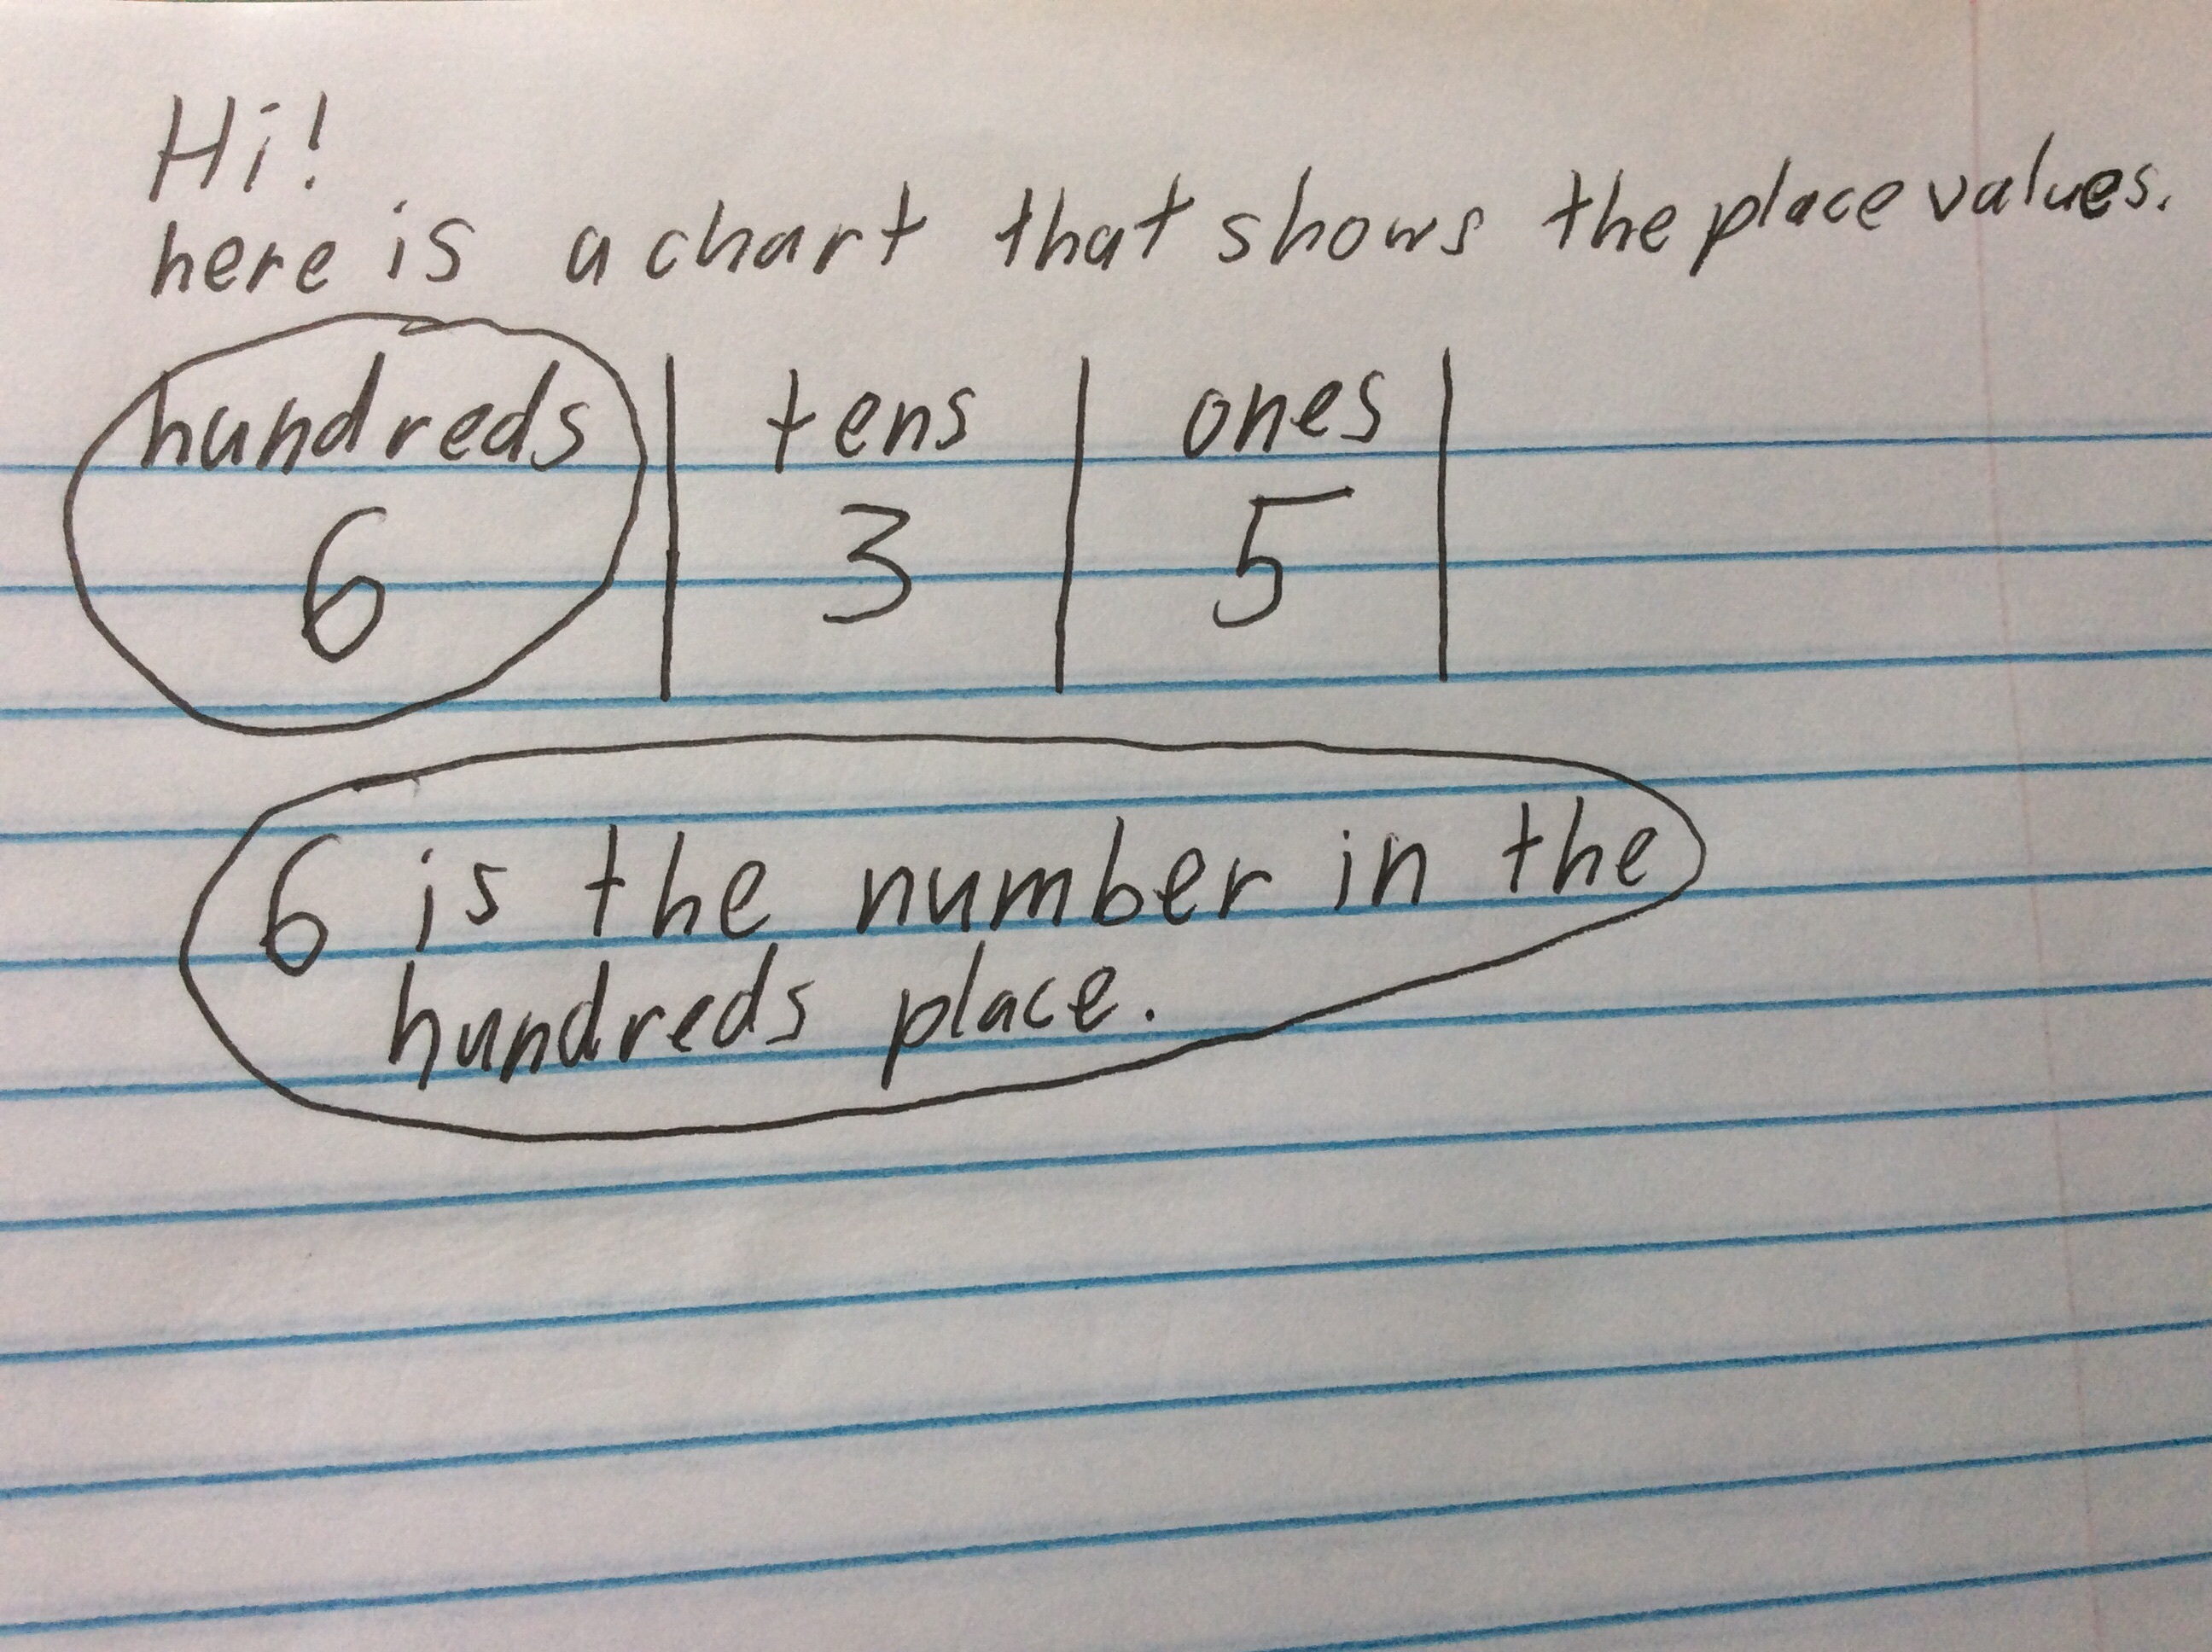 Hi!
here is a chart that shows the place values.
hundreds tens ones
6 3 5
6 is the number in the
hundreds place.